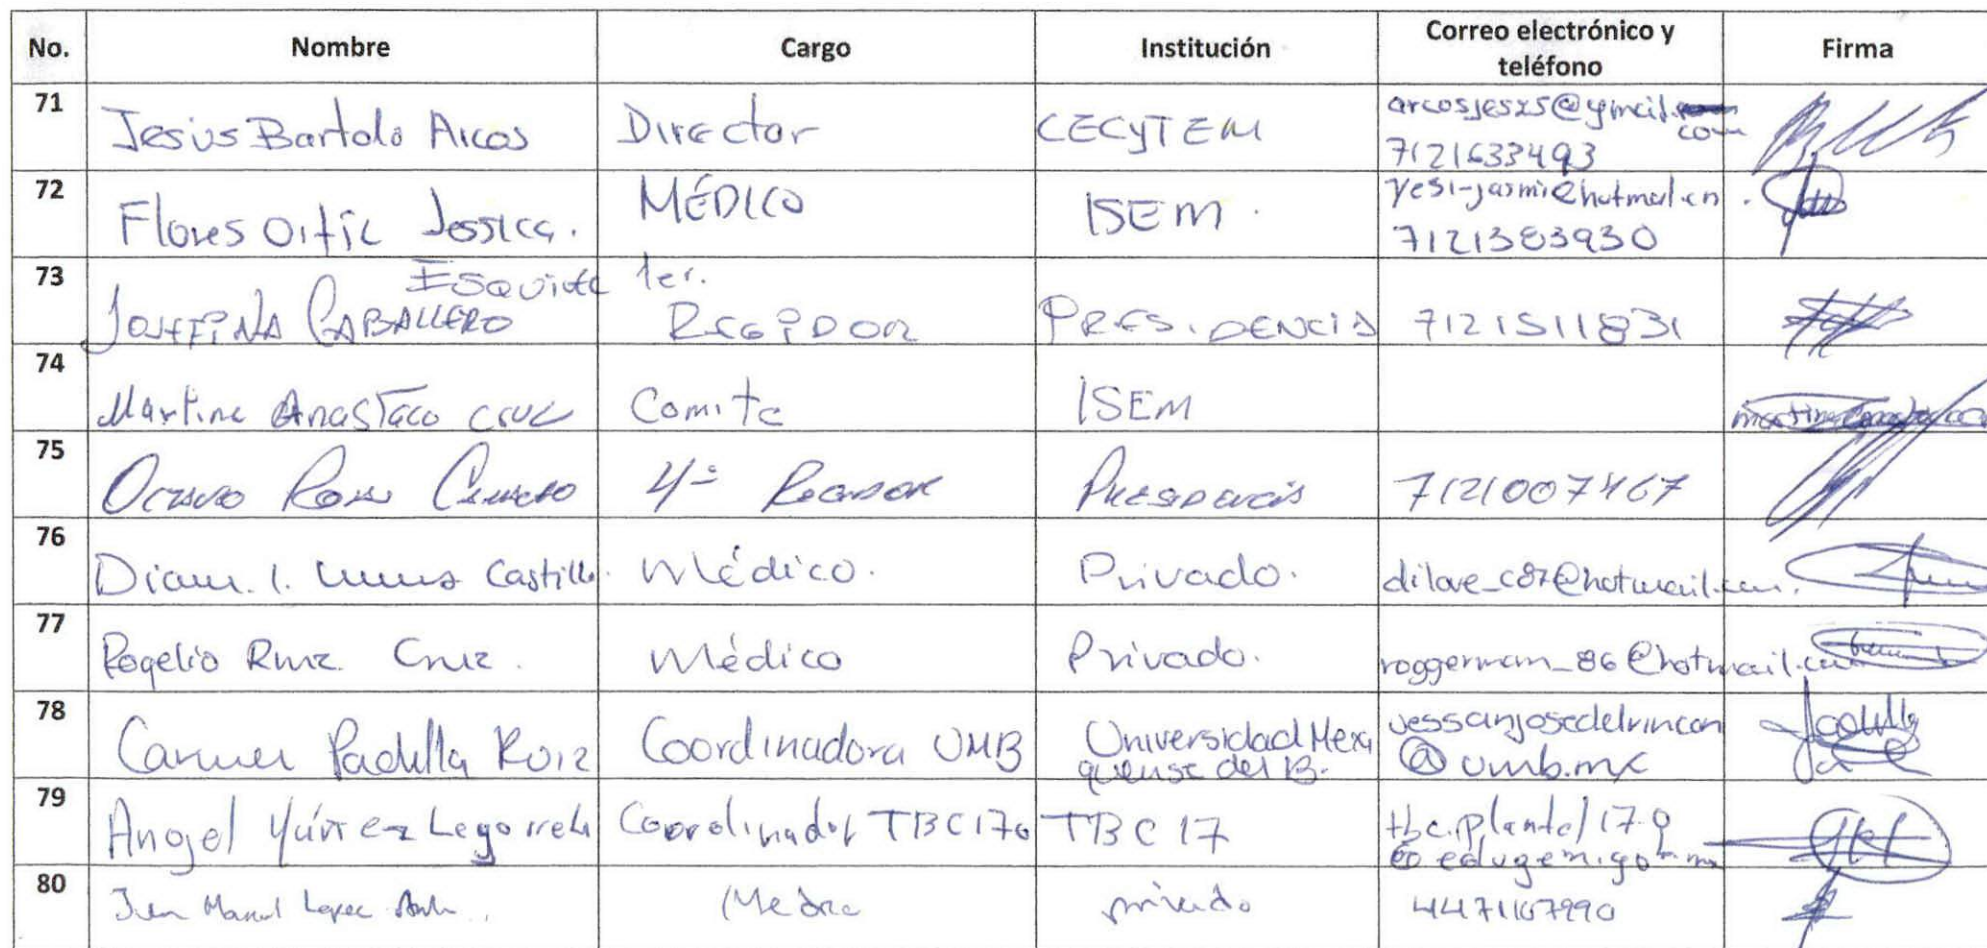 No. Nombre Cargo Institución Correo electrónico y teléfono Firma
71 Jesus Bartolo Arcos Director CECYTEM arcosjes25@gmail.com
7121633493
72 Flores Ortiz Jessica. MÉDICO ISEM. yesi-jasmi@hotmail.cn.
7121383930
73 JOSEFINA CABALLERO 1er. REGIDOR PRESIDENCIA 7121511831
74 Martina Anastaco cruz Comite ISEM
75 Octavio 4º Regidor Presidencia 7121007467
76 Diana. I. Castillo. Médico. Privado. dilove_c87@hotmail.com.
77 Rogelio Ruiz Cruz. Médico Privado. roggerman_86@hotmail.com
78 Carmen Padilla Ruiz Coordinadora UMB Universidad Mexi
quense del B. uessanjosedelrincon
@umb.mx
79 Angel Yúrrez Legorreta Coordinador TBC TBC 17 tbc.plantel17.
80 Juan Manuel Lopez Medico privado 4471167990